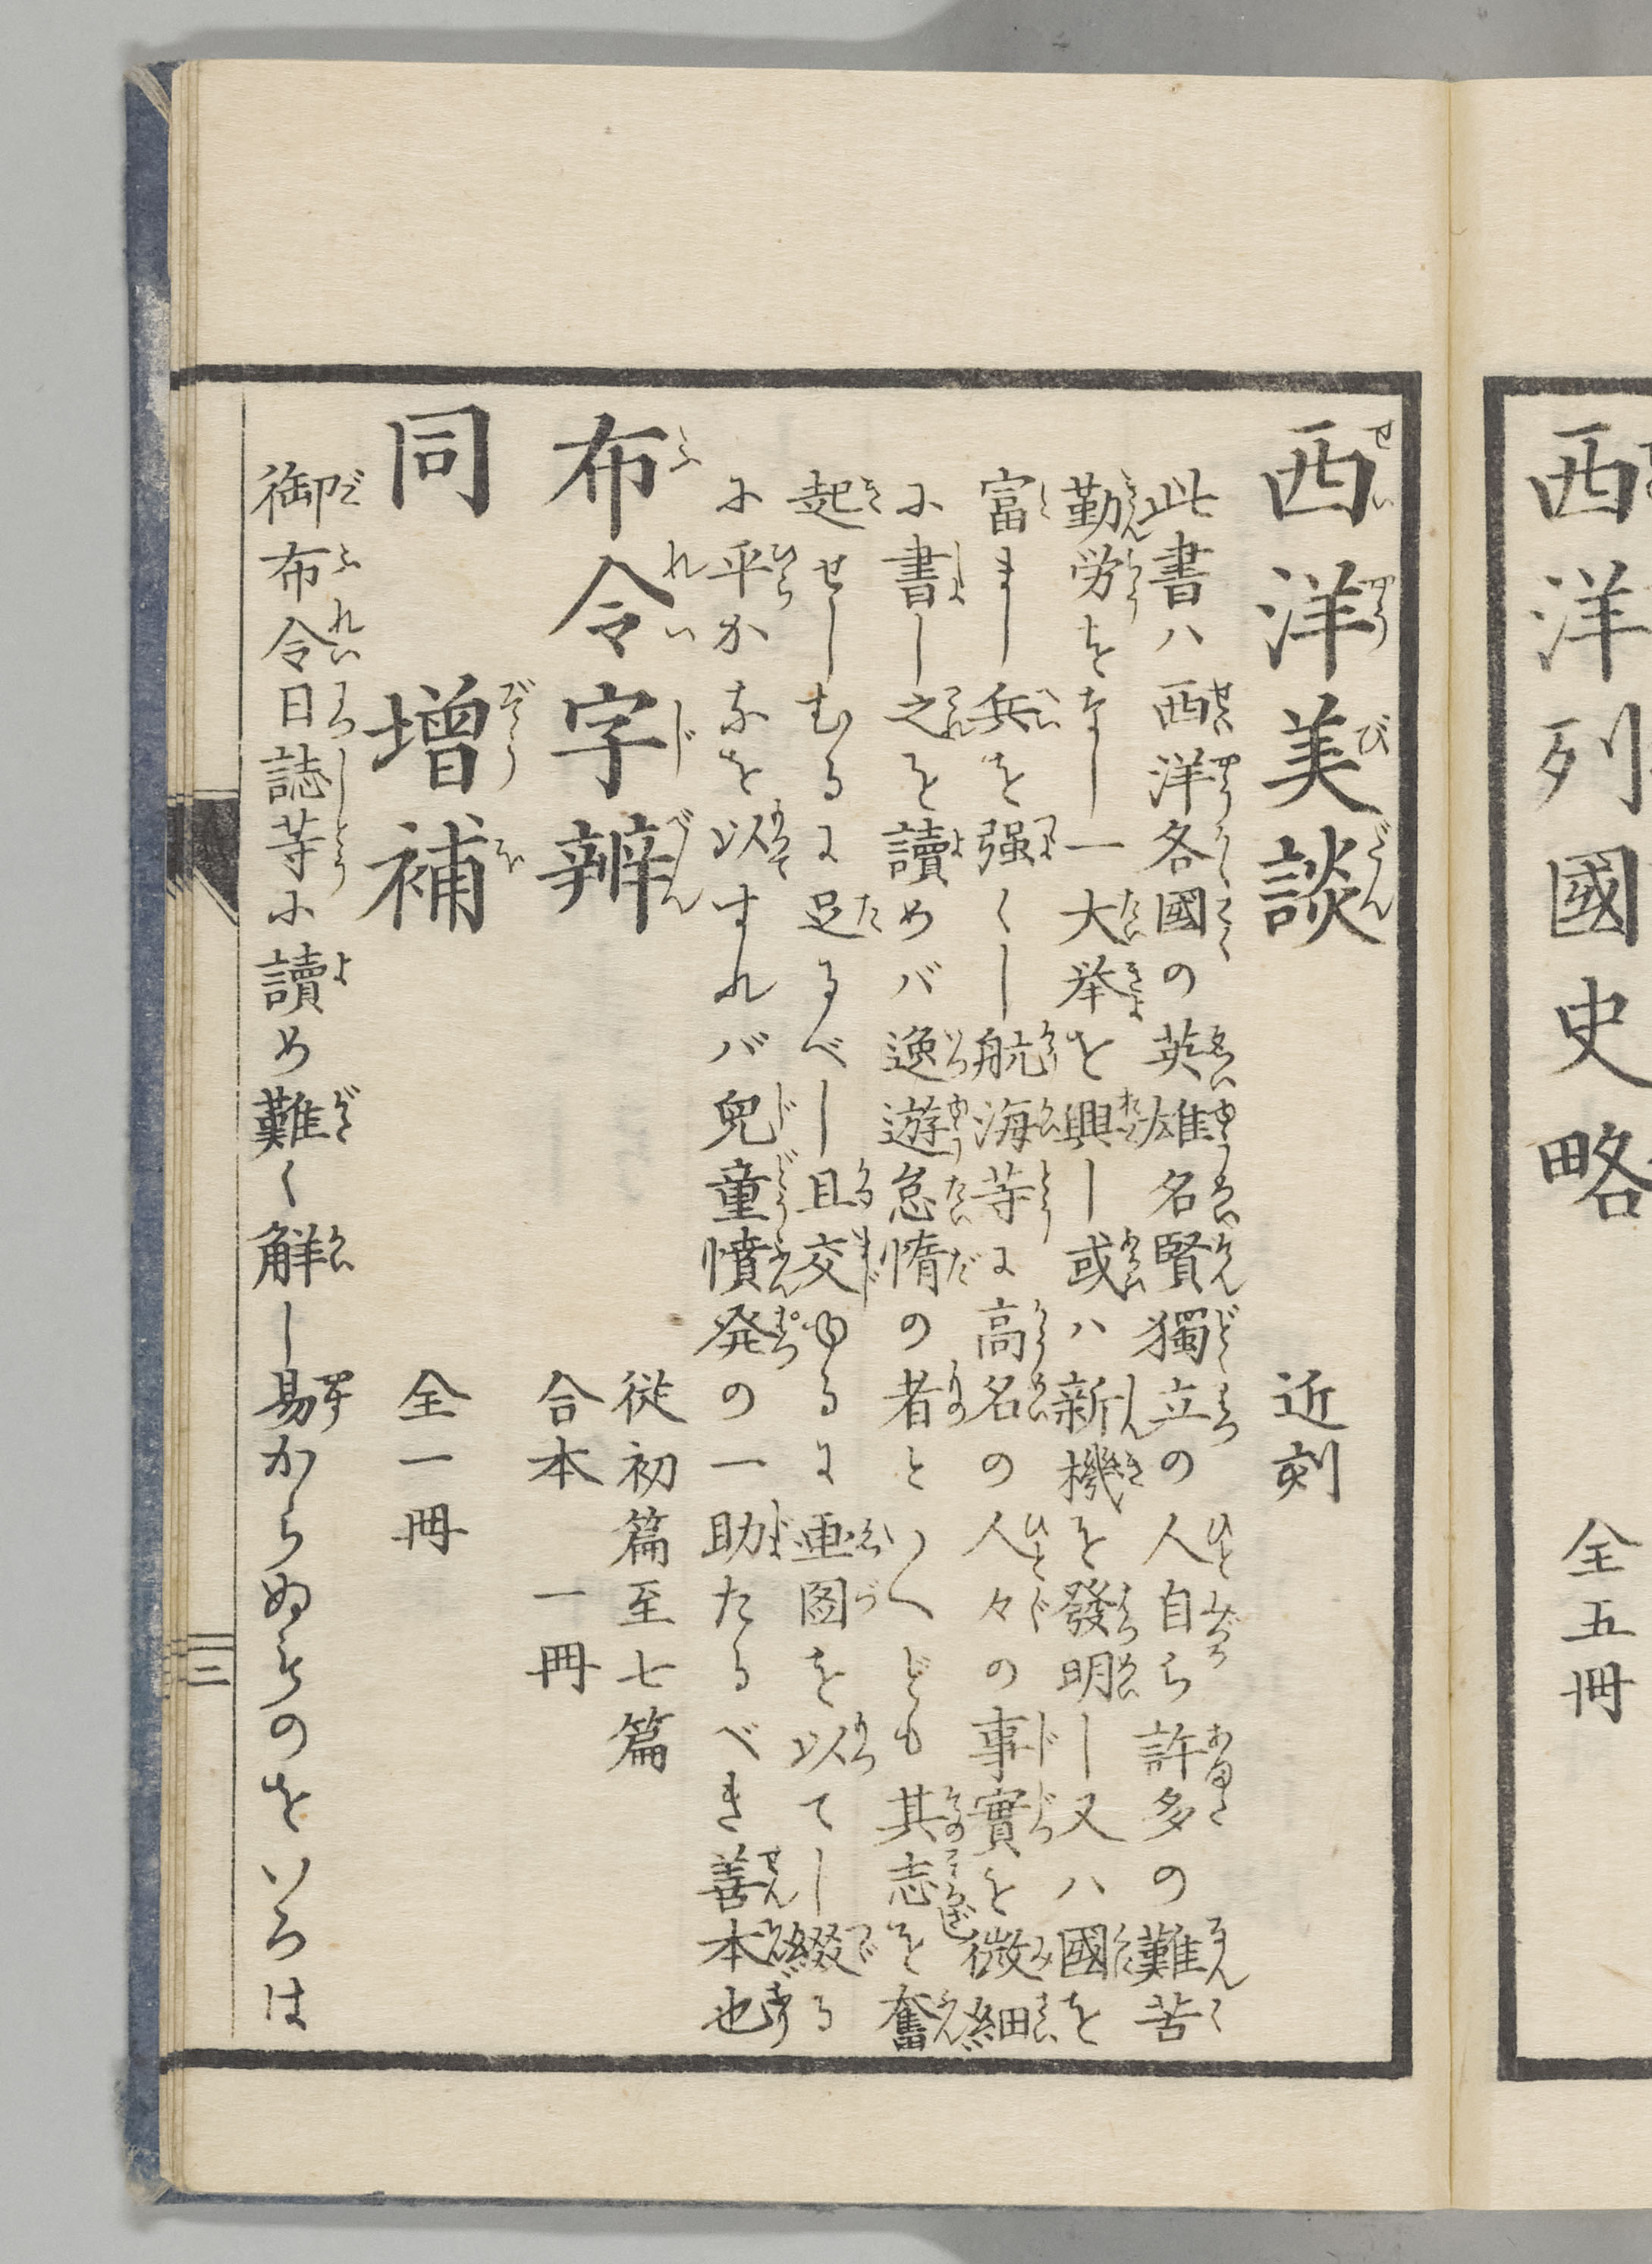 西洋列國史略　全五冊
西洋美談　近刻
此書ハ西洋各國の英雄名賢獨立の人自ら許多の難苦
勤労をなし一大挙を興し或ハ新機を發明し又ハ國を
富まし兵を强くし航海等に高名の人々の事實を微細
に書し之を讀めバ逸遊怠惰の者といへども其志を奮
起せしむるに足るべし且交ゆるに画図を以てし綴る
に平かなを以すれバ兒童憤発の一助たるべき善本也
布令字辨　従初篇至七篇
合本一冊
同増補　全一冊
御布令日誌等に讀め難く解し易からぬものをいろは
三